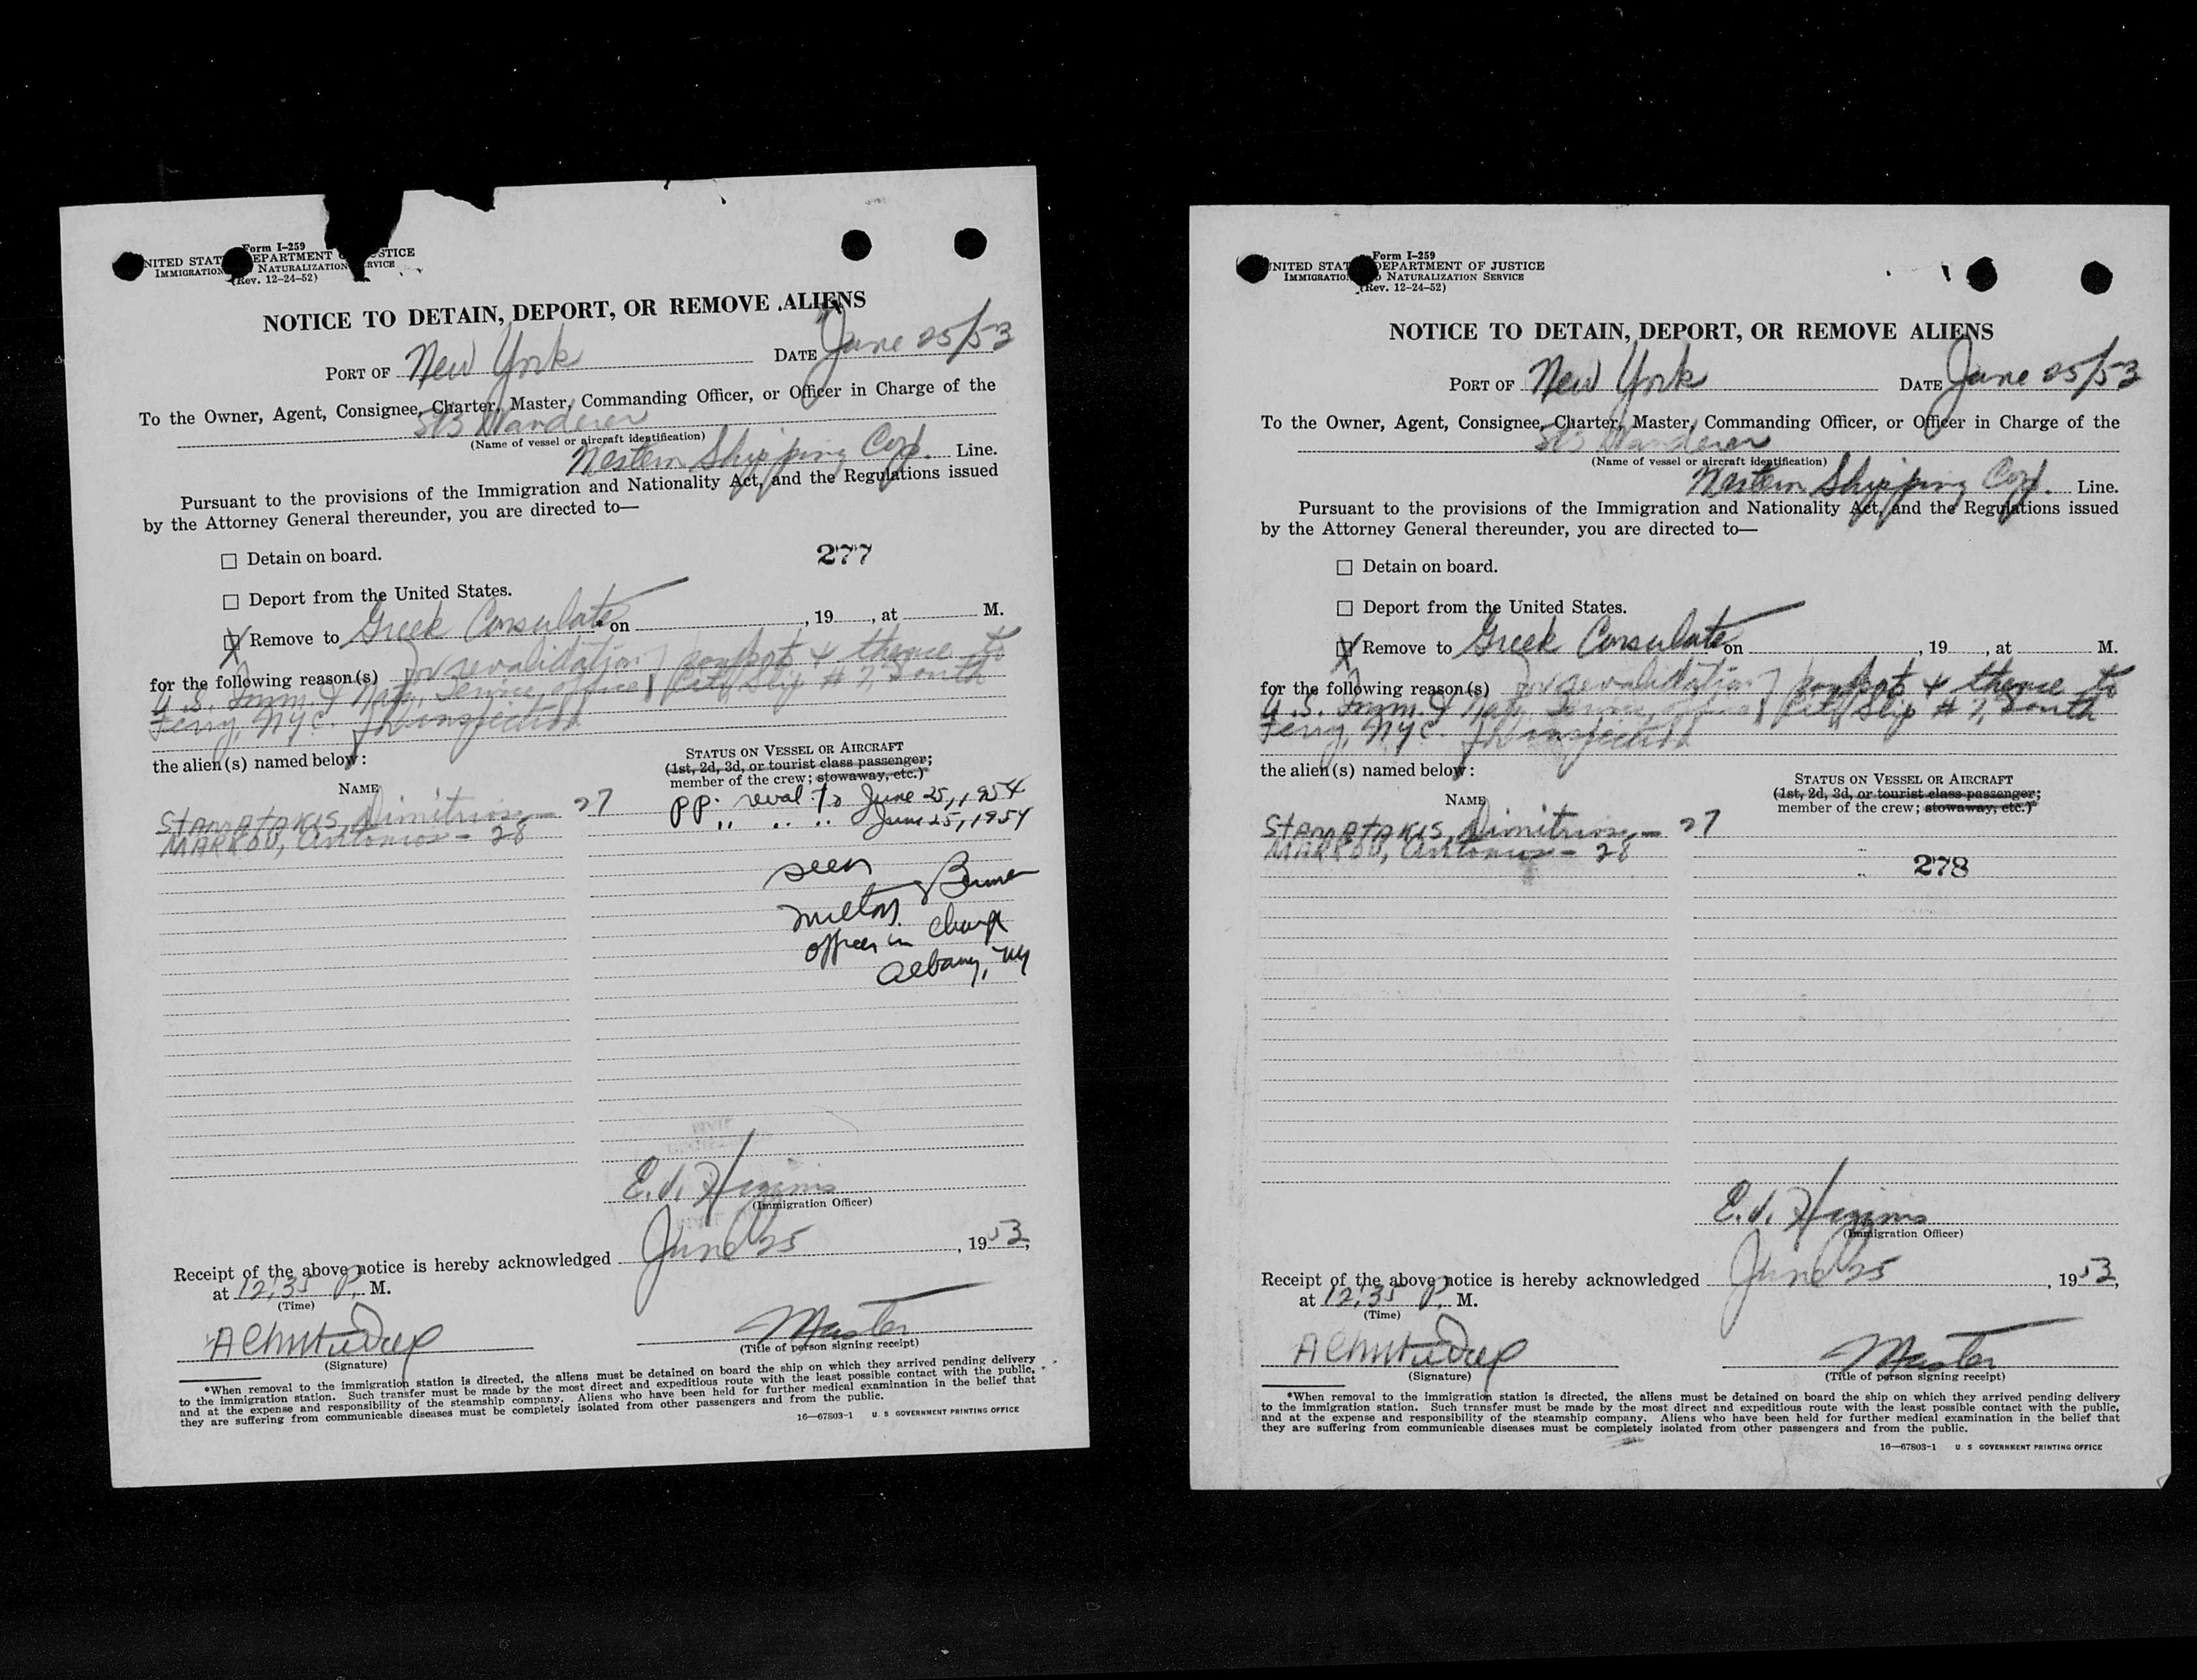 Form I-259
NITED STAT EPARTMENT O STICE
IMMIGRATION NATURALIZATION RVICE
(Rev. 12-24-52)
NOTICE TO DETAIN, DEPORT, OR REMOVE ALIENS
PORT OF New York DATE June 25/53
To the Owner, Agent, Consignee, Charter, Master, Commanding Officer, or Officer in Charge of the
Wanderer
(Name of vessel or aircraft identification)
Western Shipping Corp. Line.
Pursuant to the provisions of the Immigration and Nationality Act, and the Regulations issued
by the Attorney General thereunder, you are directed to—
☐ Detain on board.
277
☐ Deport from the United States.
☒ Remove to Greek Consulate * on , 19 , at M.
for the following reason(s) for revalidation passport & thence to
U.S. Imm. & Natz. Service, office, Slip # 7, South
Ferry, NYC. for inspection
the alien(s) named below:
STATUS ON VESSEL OR AIRCRAFT
(1st, 2d, 3d, or tourist class passenger;
member of the crew; stowaway, etc.)
NAME
STAMATAKIS, Dimitrios - 27 pp. reval to June 25, 1954
MARKOU, Antonios - 28 " " " June 25, 1954
seen
Milton Berman
officer in charge
Albany, NY
E. J. Higgins
(Immigration Officer)
Receipt of the above notice is hereby acknowledged June 25, 1953,
at 12:35 P. M.
(Time)
Master
(Signature) (Title of person signing receipt)
*When removal to the immigration station is directed, the aliens must be detained on board the ship on which they arrived pending delivery
to the immigration station. Such transfer must be made by the most direct and expeditious route with the least possible contact with the public,
and at the expense and responsibility of the steamship company. Aliens who have been held for further medical examination in the belief that
they are suffering from communicable diseases must be completely isolated from other passengers and from the public.
16—67803-1 U. S GOVERNMENT PRINTING OFFICE
Form I-259
NITED STAT DEPARTMENT OF JUSTICE
IMMIGRATIO D NATURALIZATION SERVICE
(Rev. 12-24-52)
NOTICE TO DETAIN, DEPORT, OR REMOVE ALIENS
PORT OF New York DATE June 25/53
To the Owner, Agent, Consignee, Charter, Master, Commanding Officer, or Officer in Charge of the
Wanderer
(Name of vessel or aircraft identification)
Western Shipping Corp. Line.
Pursuant to the provisions of the Immigration and Nationality Act, and the Regulations issued
by the Attorney General thereunder, you are directed to—
☐ Detain on board.
☐ Deport from the United States.
☒ Remove to Greek Consulate on , 19 , at M.
for the following reason(s) for revalidation passport & thence to
U.S. Imm. & Natz. Service, office, Slip # 7, South
Ferry, NYC. for inspection
the alien(s) named below:
STATUS ON VESSEL OR AIRCRAFT
(1st, 2d, 3d, or tourist class passenger;
member of the crew; stowaway, etc.)
NAME
STAMATAKIS, Dimitrios - 27
MARKOU, Antonios - 28
278
E. J. Higgins
(Immigration Officer)
Receipt of the above notice is hereby acknowledged June 25, 1953,
at 12:35 P. M.
(Time)
Master
(Signature) (Title of person signing receipt)
*When removal to the immigration station is directed, the aliens must be detained on board the ship on which they arrived pending delivery
to the immigration station. Such transfer must be made by the most direct and expeditious route with the least possible contact with the public,
and at the expense and responsibility of the steamship company. Aliens who have been held for further medical examination in the belief that
they are suffering from communicable diseases must be completely isolated from other passengers and from the public.
16—67803-1 U. S GOVERNMENT PRINTING OFFICE